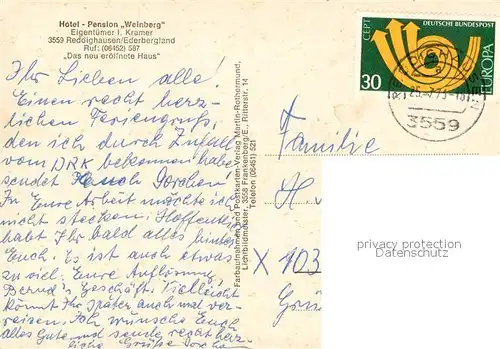 Hotel - Pension „Weinberg"
Eigentümer I. Kramer
3559 Reddighausen/Ederbergland
Ruf: (06452) 587
„Das neu eröffnete Haus"
Ihr Lieben alle!
Einen recht herz-
lichen Feriengruß,
den ich durch Zufall
vom DRK bekommen habe
sendet Euch Dorchen
In Eure Arbeit möchte ich
nicht stecken. Hoffentlich
habt Ihr bald alles hinter
Euch. Es ist auch etwas
zu viel: Eure Auflösung
Bernd's Geschäft. Vielleicht
könnt Ihr später auch mal ver-
reisen. Ich wünsche Euch
alles Gute und sende recht herz-
liche Grüße Dorchen
Farbaufnahme und Postkarten-Verlag Martin Rothermund,
Lichtbildmeister, 3558 Frankenberg/E., Ritterstr. 14
Telefon (06451) 521
CEPT
DEUTSCHE BUNDESPOST
EUROPA
30
3559
Familie
H
X 103
Grü
privacy protection
Datenschutz